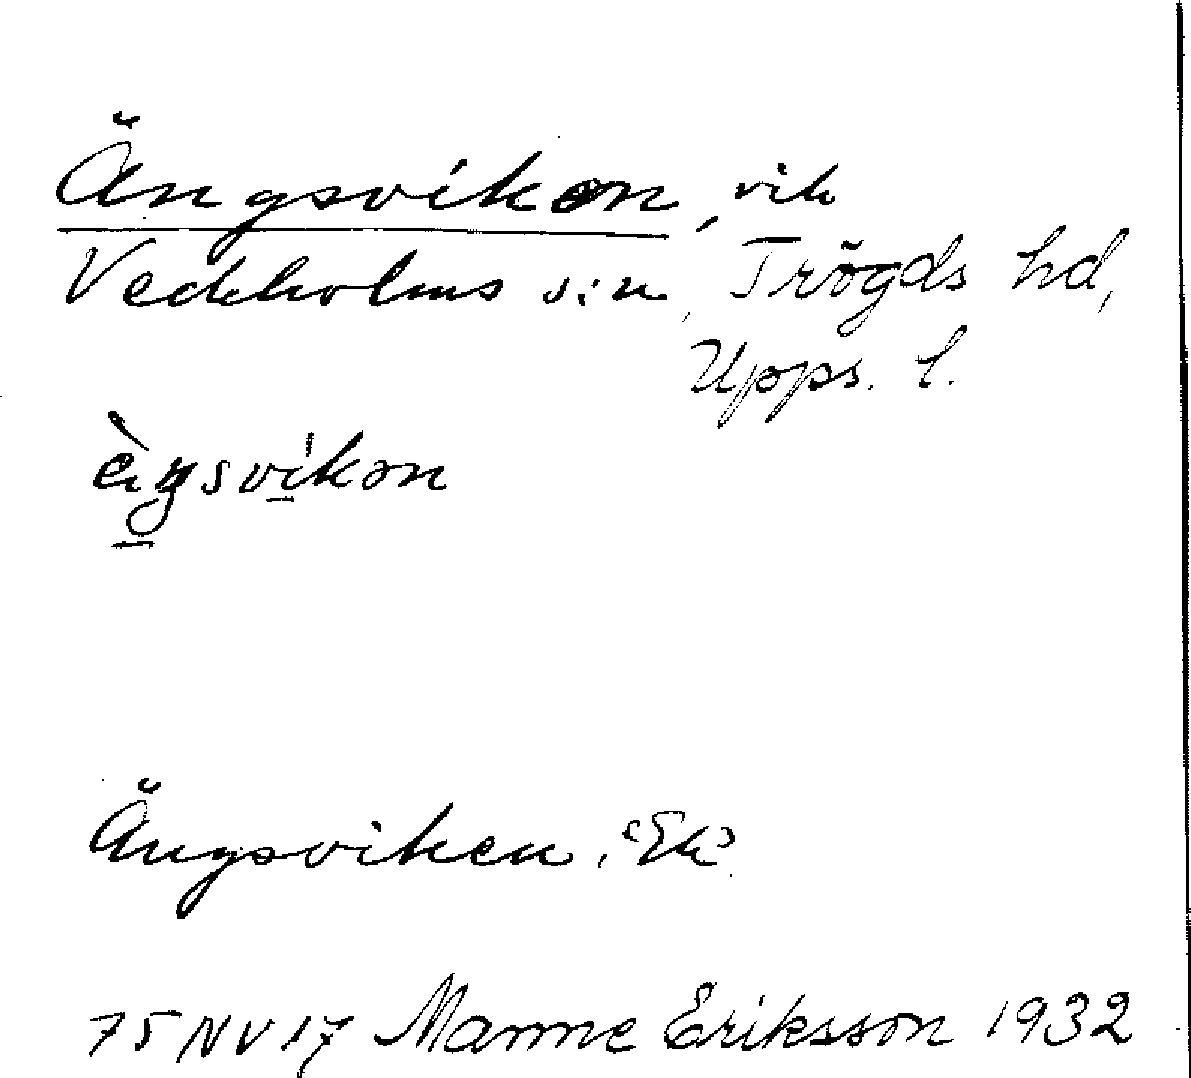 Ängsviken, vik
Veckholms s:n, Trögds hd,
Upps. l.
ὲŋsvikən
Ängsviken, "Ek"
75 NV 17 Manne Eriksson 1932